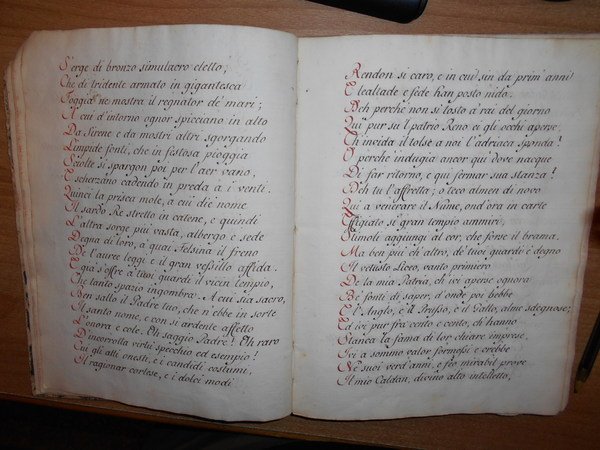 Serge di bronzo simulacro eletto,
Che di tridente armato in gigantesca
Foggia ne mostra il regnator de' mari;
A cui d'intorno ognor spicciano in alto
Da Sirene e da mostri altri sgorgando
Limpide fonti, che in festosa pioggia
Sciolte si spargon poi per l'aer vano,
E scherzano cadendo in preda a i venti.
Quinci la prisca mole, a cui diè nome
Il sardo Re stretto in catene, e quindi
L'altra sorge più vasta, albergo e sede
Degna di loro, a quai Felsina il freno
De l'auree leggi e il gran vessillo affida.
E già s'offre a' tuoi guardi il vicin tempio,
Che tanto spazio ingombra. A cui sia sacro,
Ben sallo il Padre tuo, che n'ebbe in sorte
Il santo nome, e con sì ardente affetto
L'onora e cole. Oh saggio Padre! Oh raro
D'incorrotta virtù specchio ed esempio!
Cui gli atti onesti, e i candidi costumi,
Il ragionar cortese, e i dolci modi
Rendon sì caro, e in cui sin da prim' anni
E lealtade e fede han posto nido.
Deh perchè non sì tosto a' rai del giorno
Qui pur su 'l patrio Reno ei gli occhi aperse,
Ch' invida il tolse a noi l'adriaca sponda!
O perchè indugia ancor qui dove nacque
Di far ritorno, e qui fermar sua stanza!
Deh tu l'affretta; o teco almen di novo
Qui a venerare il Nume, ond'ora in carte
Effigiato sì gran tempio ammiri,
Stimoli aggiungi al cor, che forse il brama.
Ma ben più ch'altro, de' tuoi guardi è degno
Il vetusto Liceo, vanto primiero
De la mia Patria, ch' ivi aperse ognora
Bei fonti di saper, d'onde poi bebbe
E l'Anglo, e il Prusso, e il Gallo, alme sdegnose;
Ed ivi pur fra cento e cento, ch' hanno
Stanca la fama di lor chiare imprese,
Ivi a sommo valor formossi e crebbe
Ne' suoi verd'anni, e fèo mirabil prove
Il mio Caldan, divino alto intelletto,